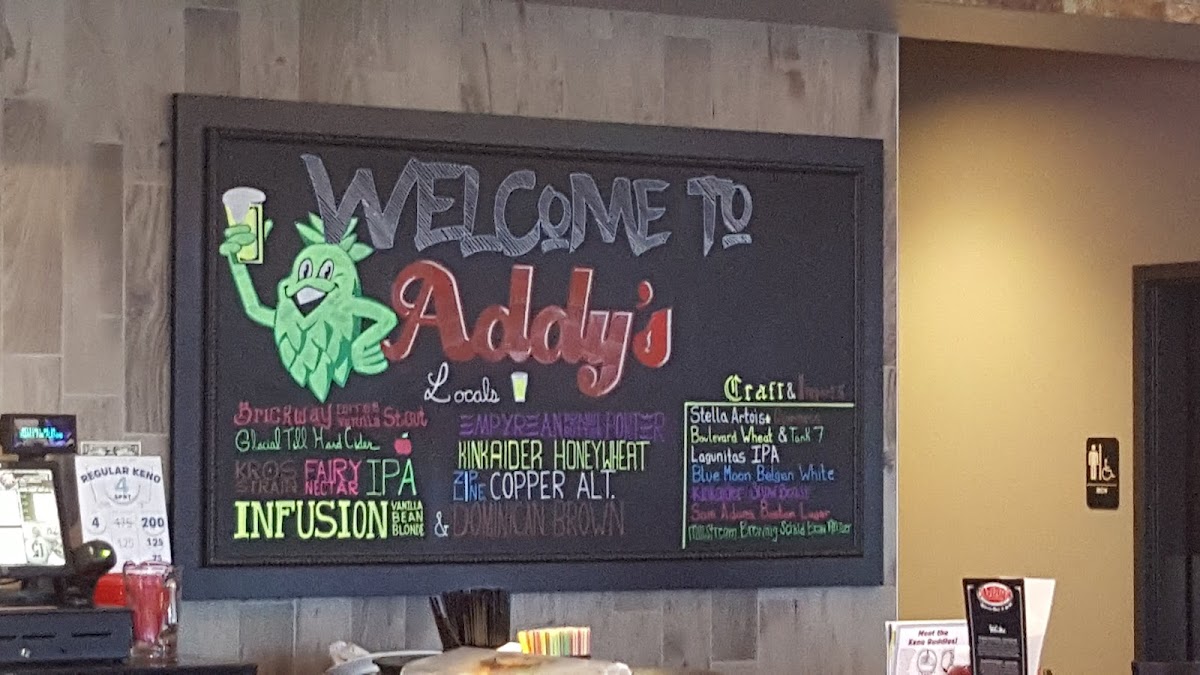 WELCOME TO
Addy's
Locals
Brickway COFFEE VANILLA Stout
Glacial Till Hard Cider
KROS STRAIN FAIRY NECTAR IPA
INFUSION VANILLA BEAN BLONDE & DOMINICAN BROWN
EMPYREAN PORTER
KINKAIDER HONEYWHEAT
ZIP LINE COPPER ALT.
Craft & Imports
Stella Artois
Boulevard Wheat & Tank 7
Lagunitas IPA
Blue Moon Belgan White
Kinkaider
Sam Adams Boston Lager
Millstream Brewing Schild Brau
REGULAR KENO
4
SPOT
4 200
125 125
Meet the
Keno Buddies!
MEN